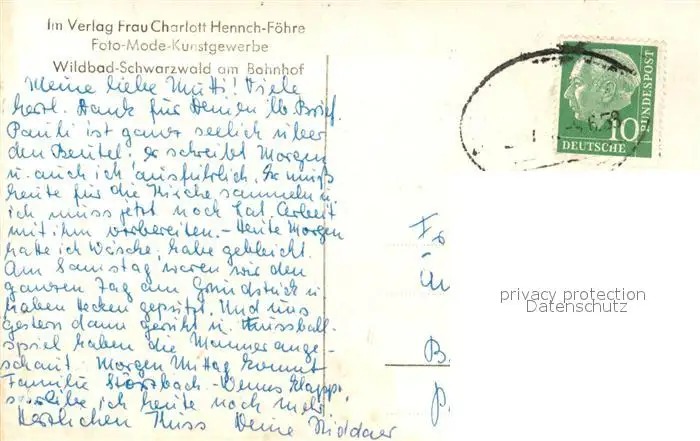 Im Verlag Frau Charlott Hennch-Föhre
Foto-Mode-Kunstgewerbe
Wildbad-Schwarzwald am Bahnhof
Meine liebe Mutti! Viele
herzl. Dank für Deinen lb. Brief.
Pauli ist ganz seelich über
den Beutel, er schreibt Morgen
u. auch ich ausführlich. Er muß
heute für die Kirche sammeln u.
ich muss jetzt noch Lat. Arbeit
mit ihm vorbereiten. - Heute Morgen
hatte ich Wäsche, habe gebleicht.
Am Samstag waren wir den
ganzen Tag am Grundstück u.
haben Hecken geputzt. Und uns
gestern dann geruht u. Fussball-
spiel haben die Männer ange-
schaut. Morgen Mittag kommt
Familie - Wenns klappt
schreibe ich heute noch mehr
Herzlichen Kuss Deine
10
DEUTSCHE
BUNDESPOST
privacy protection
Datenschutz